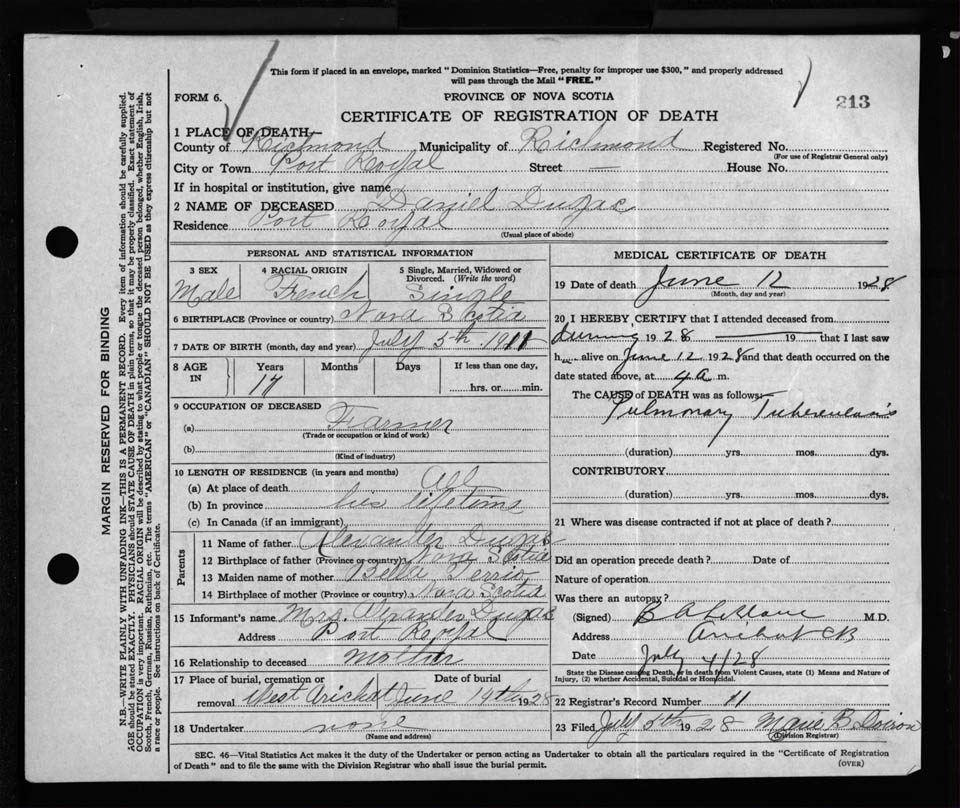 This form if placed in an envelope, marked "Dominion Statistics—Free, penalty for improper use $300," and properly addressed
will pass through the Mail "FREE."
FORM 6.
PROVINCE OF NOVA SCOTIA
213
CERTIFICATE OF REGISTRATION OF DEATH
1 PLACE OF DEATH—
County of Richmond Municipality of Richmond Registered No.
(For use of Registrar General only)
City or Town Port Royal Street — House No.
If in hospital or institution, give name
2 NAME OF DECEASED Daniel Dugas
Residence Port Royal
(Usual place of abode)
PERSONAL AND STATISTICAL INFORMATION
3 SEX 4 RACIAL ORIGIN 5 Single, Married, Widowed or
Divorced. (Write the word)
Male French Single
6 BIRTHPLACE (Province or country) Nova Scotia
7 DATE OF BIRTH (month, day and year) July 5th 1911
8 AGE IN Years Months Days If less than one day,
17 hrs. or min.
9 OCCUPATION OF DECEASED
(a) Farmer
(Trade or occupation or kind of work)
(b)
(Kind of industry)
10 LENGTH OF RESIDENCE (in years and months)
(a) At place of death All
(b) In province his lifetime
(c) In Canada (if an immigrant)
Parents
11 Name of father Alexander Dugas
12 Birthplace of father (Province or country) Nova Scotia
13 Maiden name of mother Belle
14 Birthplace of mother (Province or country) Nova Scotia
15 Informant's name Mrs. Dugas
Address Port Royal
16 Relationship to deceased Mother
17 Place of burial, cremation or Date of burial
removal West Arichat June 14th 1928
18 Undertaker none
(Name and address)
MEDICAL CERTIFICATE OF DEATH
19 Date of death June 12 1928
(Month, day and year)
20 I HEREBY CERTIFY that I attended deceased from
during 1928 19 that I last saw
h alive on June 12 1928 and that death occurred on
date stated above, at 4 a m.
The CAUSE of DEATH was as follows:
Pulmonary Tuberculosis
(duration) yrs. mos. dys.
CONTRIBUTORY
(duration) yrs. mos. dys.
21 Where was disease contracted if not at place of death?
Did an operation precede death? Date of
Nature of operation
Was there an autopsy?
(Signed) B A LeBlanc M.D.
Address Arichat CB
Date July 4/28
State the Disease causing Death, or in death from Violent Causes, state (1) Means and Nature of
Injury, (2) whether Accidental, Suicidal or Homicidal.
22 Registrar's Record Number 11
23 Filed July 5th 1928 Marie B Doiron
(Division Registrar)
SEC. 46—Vital Statistics Act makes it the duty of the Undertaker or person acting as Undertaker to obtain all the particulars required in the "Certificate of Registration
of Death" and to file the same with the Division Registrar who shall issue the burial permit.
(OVER)
MARGIN RESERVED FOR BINDING
N.B.—WRITE PLAINLY WITH UNFADING INK—THIS IS A PERMANENT RECORD. Every item of information should be carefully supplied.
AGE should be stated EXACTLY. PHYSICIANS should STATE CAUSE OF DEATH in plain terms, so that it may be properly classified. Exact statement of
OCCUPATION is very important. RACIAL ORIGIN will be described by stating to what people or tongue the deceased person belonged, whether English, Irish,
Scotch, French, German, Russian, Ruthenian, etc. The terms "AMERICAN" or "CANADIAN" SHOULD NOT BE USED as they express citizenship but not
a race or people. See instructions on back of Certificate.